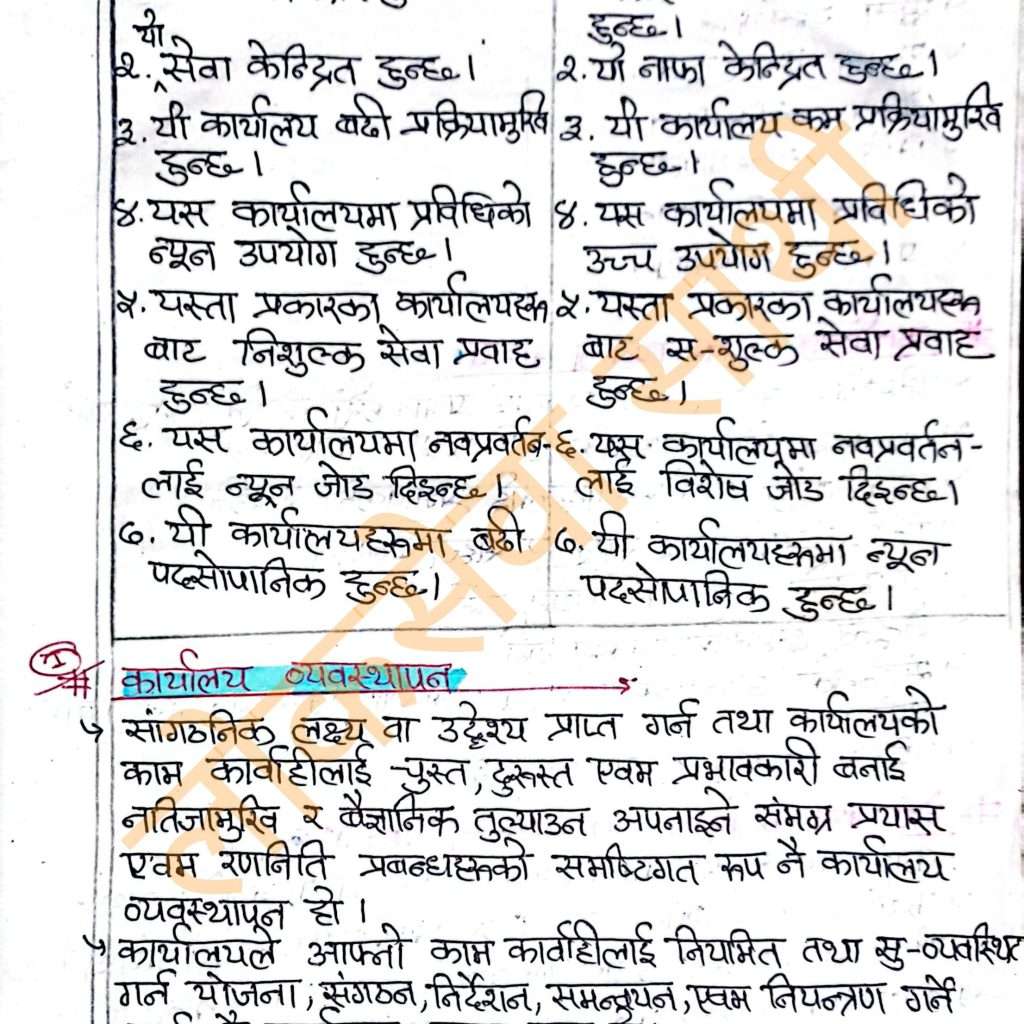 हुन्छ।
यो
२. सेवा केन्द्रित हुन्छ।
२. यो नाफा केन्द्रित हुन्छ।
३. यी कार्यालय बढी प्रक्रियामुखि
हुन्छ।
३. यी कार्यालय कम प्रक्रियामुखि
हुन्छ।
४. यस कार्यालयमा प्रविधिको
न्यून उपयोग हुन्छ।
४. यस कार्यालयमा प्रविधिको
उच्च उपयोग हुन्छ।
५. यस्ता प्रकारका कार्यालयहरू
बाट निशुल्क सेवा प्रवाह
हुन्छ।
५. यस्ता प्रकारका कार्यालयहरू
बाट स-शुल्क सेवा प्रवाह
हुन्छ।
६. यस कार्यालयमा नवप्रवर्तन-
लाई न्यून जोड दिइन्छ।
६. यस कार्यालयमा नवप्रवर्तन-
लाई विशेष जोड दिइन्छ।
७. यी कार्यालयहरूमा बढी
पदसोपानिक हुन्छ।
७. यी कार्यालयहरूमा न्यून
पदसोपानिक हुन्छ।
# कार्यालय व्यवस्थापन
सांगठनिक लक्ष्य वा उद्देश्य प्राप्त गर्न तथा कार्यालयको
काम कार्वाहीलाई चुस्त, दुरुस्त एवम प्रभावकारी बनाई
नतिजामुखि र वैज्ञानिक तुल्याउन अपनाइने संमग्र प्रयास
एवम रणनिति प्रबन्धहरूको समष्टिगत रूप नै कार्यालय
व्यवस्थापन हो।
कार्यालयले आफ्नो काम कार्वाहीलाई नियमित तथा सु-व्यवस्थित
गर्न योजना, संगठन, निर्देशन, समन्वयन, एवम नियन्त्रण गर्ने
लोकसेवा सारथी